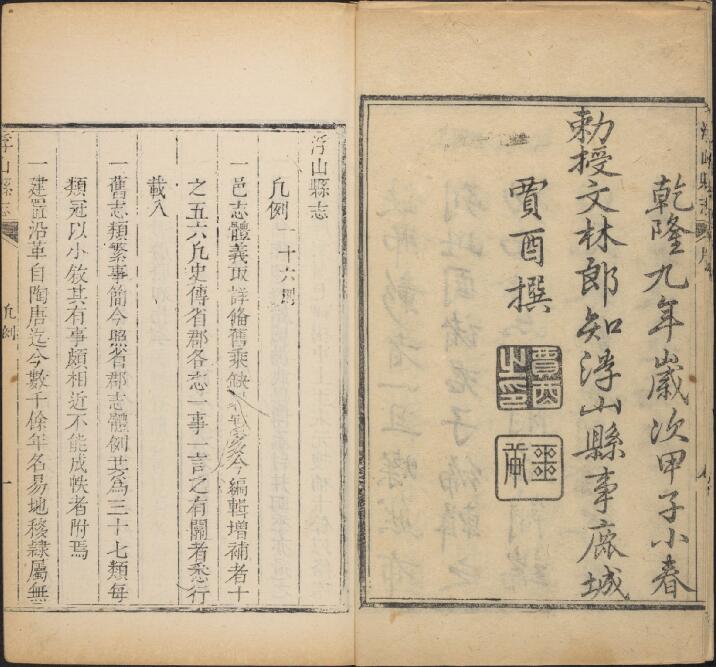 乾隆九年歲次甲子小春
勅授文林郎知浮山縣事鹿城
賈酉撰
浮山縣志
凡例二十六則
一邑志體義取詳備舊乘缺畧今編輯增補者十
之五六凡史傳省郡各志一事一言之有關者悉行
載入
一舊志類繁事簡今照省郡志體例共為三十七類每
類冠以小敘其有事頗相近不能成帙者附焉
一建置沿革自陶唐迄今數千餘年名易地移隸屬無
浮山縣志
凡例
一